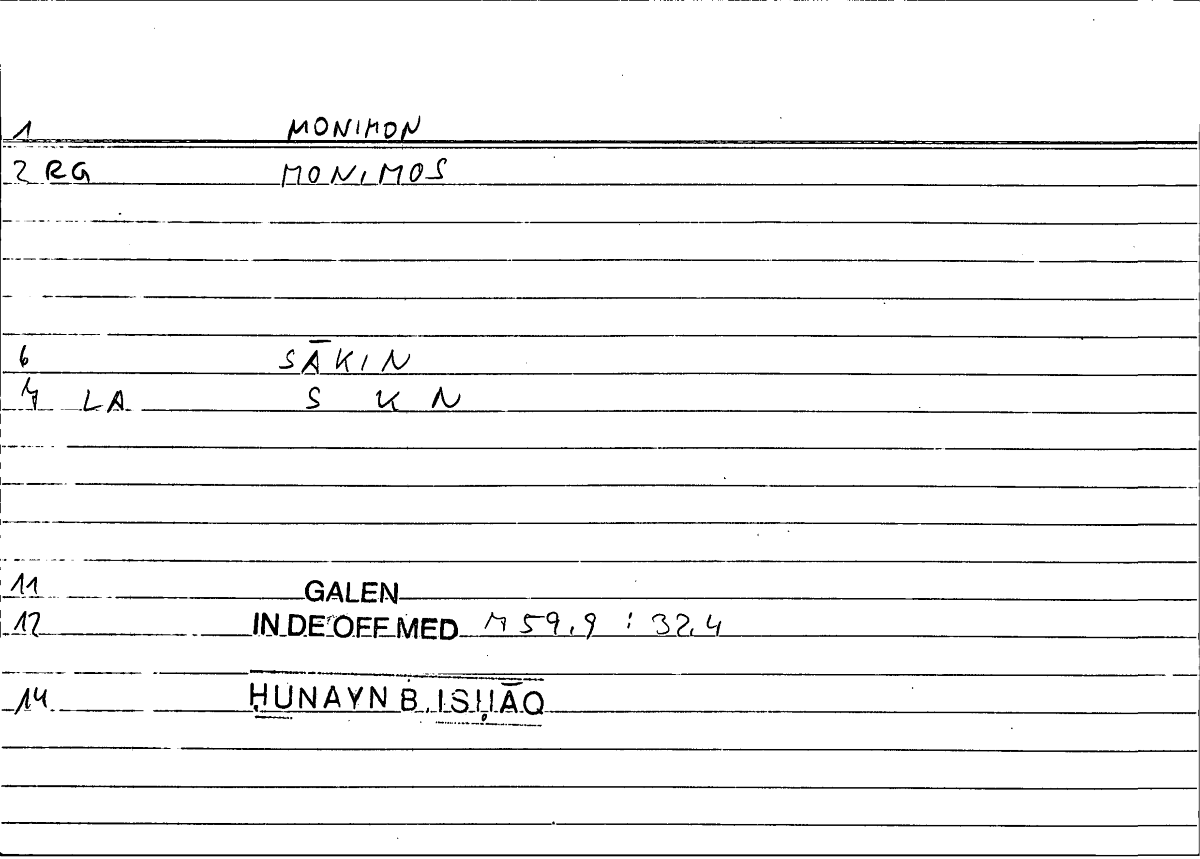 1 MONIMON
2 RG MONIMOS
6 SĀKIN
7 LA S K N
11 GALEN
12 IN DE OFF MED 59,9 : 32,4
14 ḤUNAYN B. ISḤĀQ